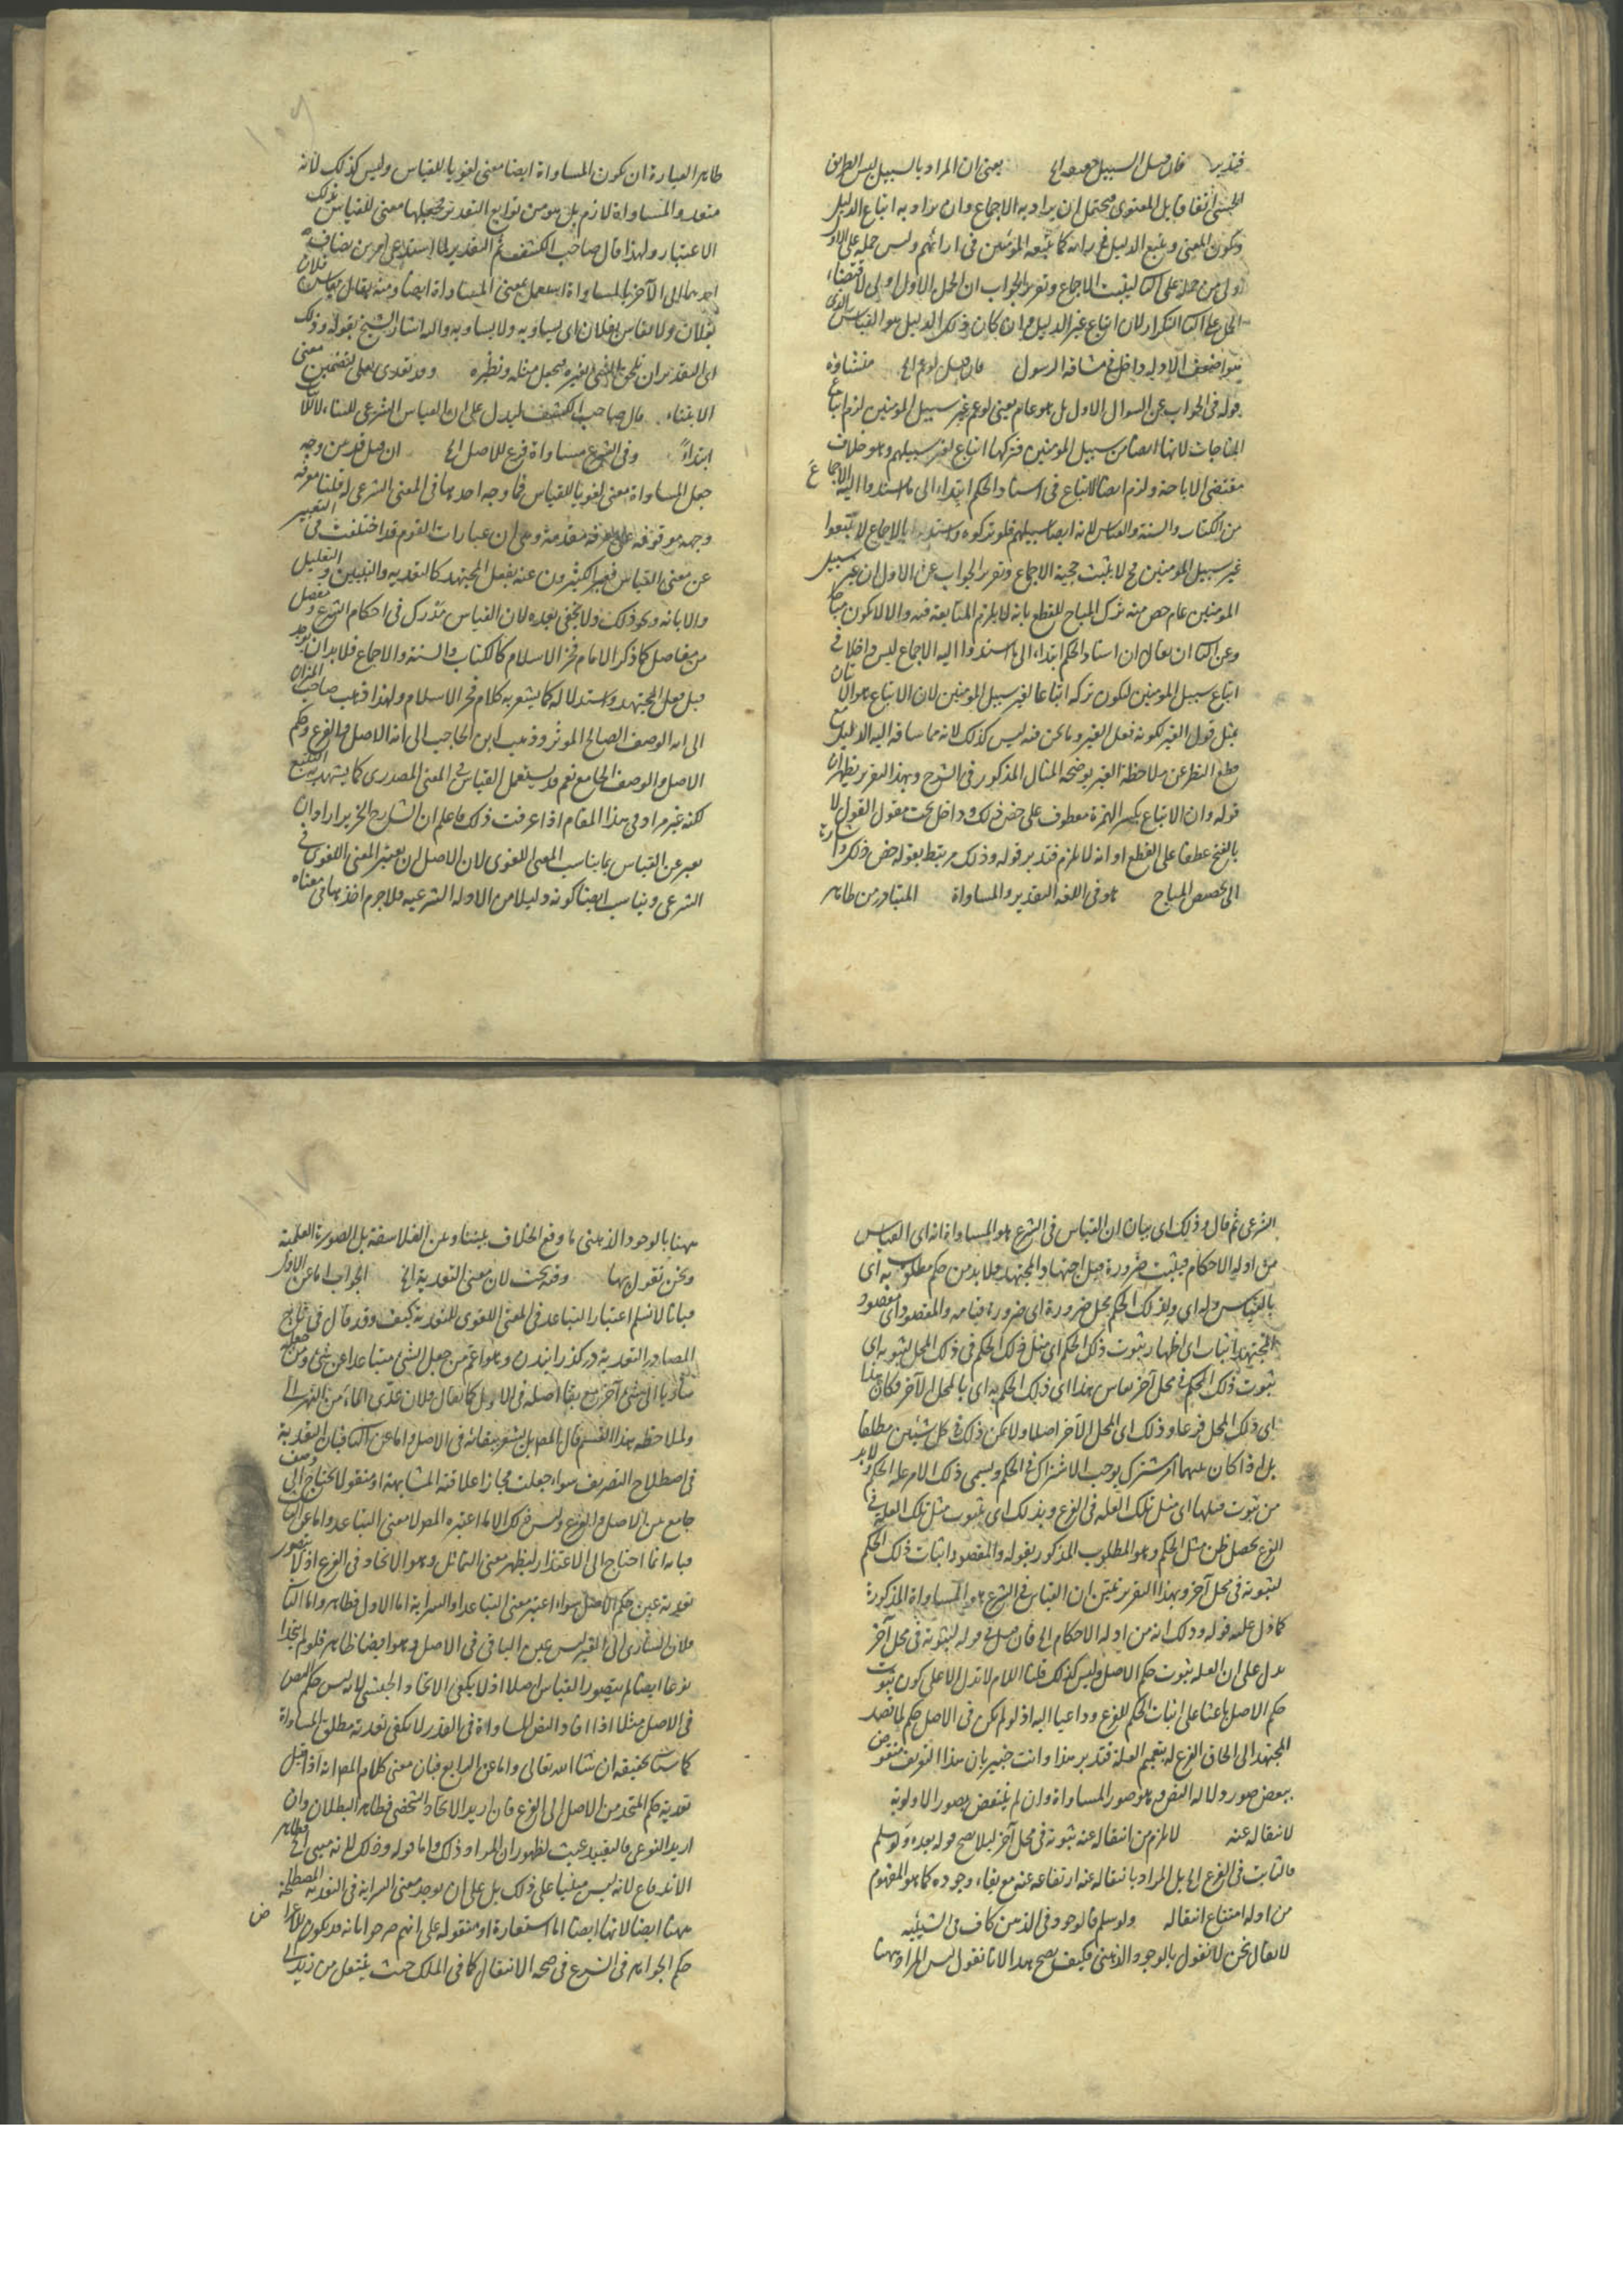 فتدبر فان قيل السبيل حقيقة الخ يعنى ان المراد بالسبيل ليس الطريق
الحسى اتفاقا بل المعنوى محتمل ان يراد به الاجماع وان يراد به اتباع الدليل
ويكون المعنى ويتبع الدليل غير ما كا يتبعه المؤمنين فى ارائهم وليس حمله على الاول
اولى من حمله على الثا ليثبت الاجماع وتقرير الجواب ان الحمل الاول اولى لاقتضاء
الحمل على الثا التكرار لان اتباع غير الدليل وان كان ذلك الدليل هو القياس الذى
هو اضعف الادلة داخل فى مشاقة الرسول فان قيل لو عم الخ منشاؤه
قوله فى الجواب عن السوال الاول بل هو عام يعنى لو عم غير سبيل المؤمنين لزم اتباع
المباحات لانها ايضا من سبيل المؤمنين فتركها اتباع لغير سبيلهم وهو خلاف
مقتضى الاباحة ولزم ايضا الاتباع فى اسناد الحكم ابتداء الى ما اسندوا اليه الاجماع
من الكتاب والسنة والقياس لانه ايضا سبيلهم فلو تركوه واستدل بالاجماع لاتبعوا
غير سبيل المؤمنين فح لا يثبت حجية الاجماع وتقرير الجواب عن الاول ان غير سبيل
المومنين عام خص منه ترك المباح للقطع بانه لا يلزم المتابعة فيه والا لا يكون مباحا
وعن الثا ان يقال ان اسناد الحكم ابتداء الى ما اسندوا اليه الاجماع ليس داخلا فى
اتباع سبيل المومنين ليكون تركه اتباعا لغير سبيل المؤمنين لان الاتباع هو الاتيان
بمثل قول الغير لكونه فعل الغير وما نحن فيه ليس كذلك لانه مما ساقه اليه الدليل مع
قطع النظر عن ملاحظة الغير يوضحه المثال المذكور فى الشرح وبهذا التقرير يظهر ان
قوله وان الاتباع بكسر الهمزة معطوف على خص ذلك وداخل تحت مقول القول لا
بالفتح عطفا على القطع او انه لا يلزم فتدبر قوله وذلك مرتبط بقوله خص ذلك واشارة
الى تخصيص المباح هو فى اللغة التقدير والمساواة المتبادر من ظاهر
ظاهر العبارة ان يكون المساواة ايضا معنى لغويا للقياس وليس كذلك لانه
متعد والمساواة لازم بل هو من توابع التقدير فيجعلها معنى للقياس بذلك
الاعتبار ولهذا قال صاحب الكشف ثم التقدير لما استدعى امرين يضاف
احدهما الى الآخر بالمساواة استعمل بمعنى المساواة ايضا ومنه يقال يقاس فلان
بفلان ولا يقاس بفلان اى يساويه ولا يساويه واليه اشار الشيخ بقوله وذلك
اى التقدير ان يلحق الشئ بغيره فيجعل مثله ونظيره وقد تعدى بعلى لتضمين معنى
الابتناء قال صاحب الكشف ليدل على ان القياس الشرعى للبناء لا للاثبات
ابتداء وفى الشرع مساواة فرع للاصل الخ ان قيل قد من وجه
جعل المساواة معنى لغويا للقياس فما وجه احدهما فى المعنى الشرعى له قلنا معرفة
وجهه موقوفة على معرفة مقدمة وهى ان عبارات القوم قد اختلفت فى التعبير
عن معنى القياس فعبر الكثيرون عنه بفعل المجتهد كالتعدية والتبيين والتعليل
والابانة ونحو ذلك ولا يخفى بعده لان القياس مدرك فى احكام الشرع ومفصل
من مفاصل كما ذكر الامام فخر الاسلام كالكتاب والسنة والاجماع فلابد ان يوجد
قبل فعل المجتهد واستدلاله كما يشعر به كلام فخر الاسلام ولهذا ذهب صاحب الميزان
الى انه الوصف الصالح الموثر وذهب ابن الحاجب الى انه الاصل والفرع وحكم
الاصل والوصف الجامع نعم قد يستعمل القياس فى المعنى المصدرى كما يشهد به التتبع
لكنه غير مراد فى هذا المقام اذا عرفت ذلك فاعلم ان الشارح النحرير اراد ان
يعبر عن القياس بما يناسب المعنى اللغوى لان الاصل ان يعتبر المعنى اللغوى فى
الشرعى ويناسب ايضا كونه دليلا من الادلة الشرعية فلا جرم اخذها فى معناه
الشرعى ثم قال وذلك اى بيان ان القياس فى الشرع هو المساواة انه اى القياس
من ادلة الاحكام فيثبت ضرورة قبل اجتهاد المجتهد فلابد من حكم مطلوب به اى
بالقياس وله اى ولذلك الحكم محل ضرورة اى ضرورة قيامه والمقصود اى مقصود
المجتهد اثبات اى اظهار ثبوت ذلك الحكم اى مثل ذلك الحكم فى ذلك المحل لثبوته اى
ثبوت ذلك الحكم فى محل آخر يقاس هذا اى ذلك الحكم به اى بالمحل الآخر فكان هذا
اى ذلك المحل فرعا وذلك اى المحل الآخر اصلا ولا يمكن ذلك فى كل شيئين مطلقا
بل اذا كان بينهما امر مشترك يوجب الاشتراك فى الحكم ويسمى ذلك الامر علة الحكم ولابد
من ثبوت مثلها اى مثل تلك العلة فى الفرع وبذلك اى بثبوت مثل تلك العلة فى
الفرع يحصل ظن مثل الحكم وهو المطلوب المذكور بقوله والمقصود اثبات ذلك الحكم
لثبوته فى محل آخر وبهذا التقرير تبين ان القياس فى الشرع هو المساواة المذكورة
كما دل عليه قوله وذلك انه من ادلة الاحكام الخ فان قيل قوله لثبوته فى محل آخر
يدل على ان العلة ثبوت حكم الاصل وليس كذلك قلنا اللام لا تدل الا على كون ثبوت
حكم الاصل باعثا على اثبات الحكم للفرع وداعيا اليه اذ لو لم يكن فى الاصل حكم لما قصد
المجتهد الى الحاق الفرع له بتعميم العلة فتدبر هذا وانت خبير بان هذا التعريف منقوض
ببعض صور دلالة النص وهو صور المساواة وان لم ينتقض بصور الاولوية
لانتقاله عنه لا يلزم من انتقاله عنه ثبوته فى محل آخر ليلا يصح قوله بعده ولو سلم
فالثابت فى الفرع الخ بل المراد بانتقاله عنه ارتفاعه عنه مع بقاء وجوده كما هو المفهوم
من ادلة امتناع انتقاله ولو سلم فالوجود فى الذهن كاف فى الشيئية
لا يقال نحن لا نقول بالوجود الذهنى فكيف يصح هذا لانا نقول ليس المراد ههنا
ههنا بالوجود الذهنى ما وقع الخلاف بيننا وبين الفلاسفة بل الصورة العلمية
ونحن نقول بها وفيه بحث لان معنى التعدية الخ الجواب اما عن الاول
فبانا لا نسلم اعتبار التباعد فى المعنى اللغوى للتعدية كيف وقد قال فى تاج
المصادر التعدية در كذرانيدن وهو اعم من جعل الشئ متباعدا عن شئ ومن جعله
ساريا الى شئ آخر مع بقا اصله فى الاول كما يقال فلان عدى الماء من النهر الخ
ولملاحظة هذا القسم قال المص بل يشعر ببقائه فى الاصل واما عن الثا فبان التعدية
فى اصطلاح التصريف سواء جعلت مجازا علاقته المشابهة او منقولا لا يحتاج الى وصف
جامع بين الاصل والفرع وليس ذلك الا ما اعتبره المص لا معنى التباعد واما عن الثالث
فبانه انما احتاج الى الاعتذار ليظهر معنى التماثل وهو الاتحاد فى الفرع اذ لا يتصور
تعدية عين حكم الاصل سواء اعتبر معنى التباعد او السراية اما الاول فظاهر واما الثا
فلان السارى الى الغير ليس عين الباقى فى الاصل وهو ايضا ظاهر فلو لم يتحدا
نوعا ايضا لم يتصور القياس اصلا اذ لا يكفى الاتحاد الجنسى لانه ليس حكم النص
فى الاصل مثلا اذا افاد النص المساواة فى القدر لا يكفى تعدية مطلق المساواة
كما سيأتى تحقيقه ان شا الله تعالى واما عن الرابع فبان معنى كلام المص انه اذا قيل
تعدية حكم المتحد من الاصل الى الفرع فان اريد الاتحاد الشخصى فظاهر البطلان وان
اريد النوعى فالتقييد عبث لظهور ان المراد ذلك واما قوله وذلك لانه مبنى الخ فظاهر
الاندفاع لانه ليس مبنيا على ذلك بل على ان يوجد معنى السراية فى التعدية المصطلحة
ههنا ايضا لانها ايضا اما استعارة او منقولة على انهم صرحوا بانه قد يكون للاعراض
حكم الجواهر فى الشرع فى صحة الانتقال كما فى الملك حيث ينتقل من زيد الى